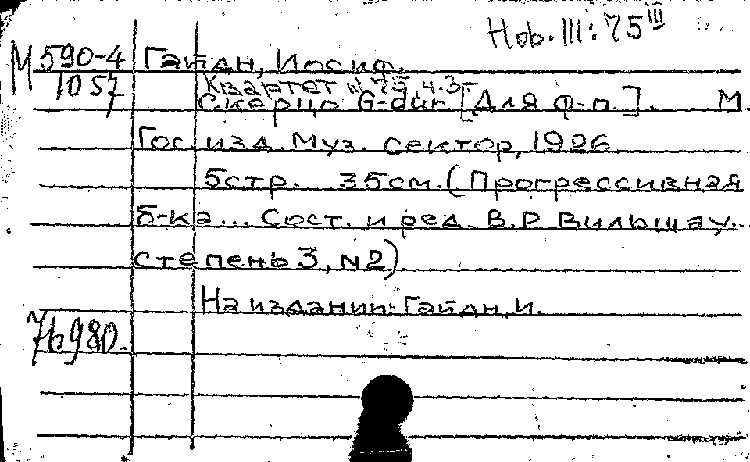 Ноb. III: 75 III
М 590-4 Гайдн, Иосиф.
1057 Квартет № 75, ч. 3я
Скерцо G-dur [Для ф-п.]. М
Гос. изд. Муз. сектор, 1926
5стр. 35см. (Прогрессивная
б-ка... Сост. и ред. В.Р. Вильшау.
степень 3, N2)
На издании: Гайдн, И.
76980.